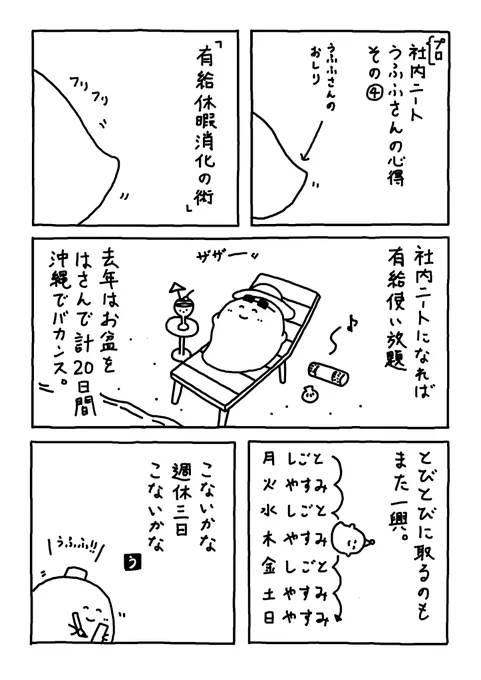 プロ
社内ニート
うふふさんの心得
その④
うふふさんの
おしり
「有給休暇消化の術」
フリフリ
社内ニートになれば
有給使い放題
ザザー
♪
去年はお盆を
はさんで計20日間
沖縄でバカンス。
とびとびに取るのも
また一興。
月 しごと
火 やすみ
水 しごと
木 やすみ
金 しごと
土 やすみ
日 やすみ
こないかな
週休三日
こないかな
う
うふふ!!